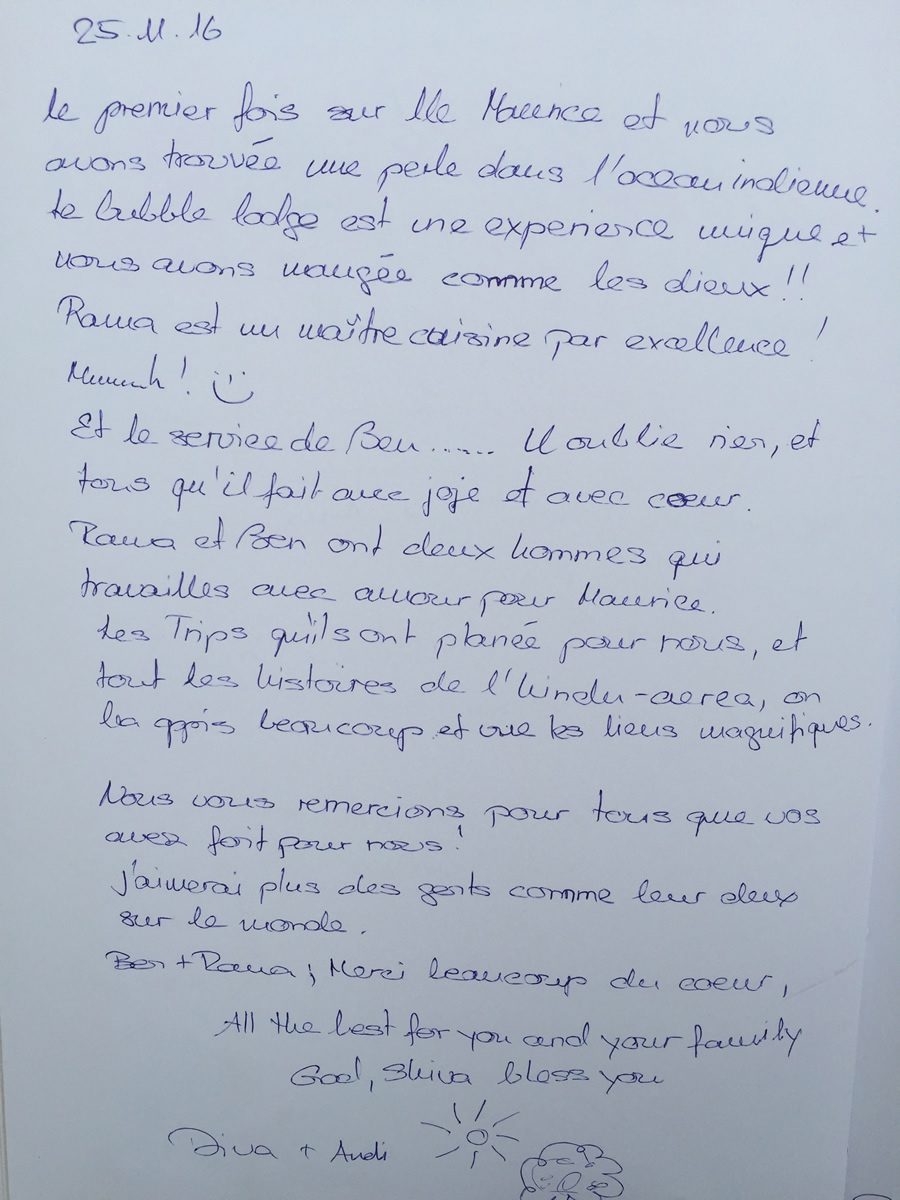 25.11.16
le premier fois sur Ile Maurice et nous
avons trouvée une perle dans l'ocean indienne.
Le bubble lodge est une experience unique et
nous avons mangée comme les dieux!!
Rama est un maître cuisine par excellence!
Mmmmh!
Et le service de Ben...... Il oublie rien, et
tous qu'il fait avec joje et avec coeur.
Rama et Ben ont deux hommes qui
travailles avec amour pour Maurice.
Les Trips qu'ils ont planée pour nous, et
tout les histoires de l'hindu-aerea, on
beaucoup et vue les liens magnifiques.
Nous vous remercions pour tous que vos
avez fait pour nous!
J'aimerai plus des gents comme leur deux
sur le monde.
Ben + Rama; Merci beaucoup du coeur,
All the best for you and your family
God, Shiva bless you
Diva + Andi